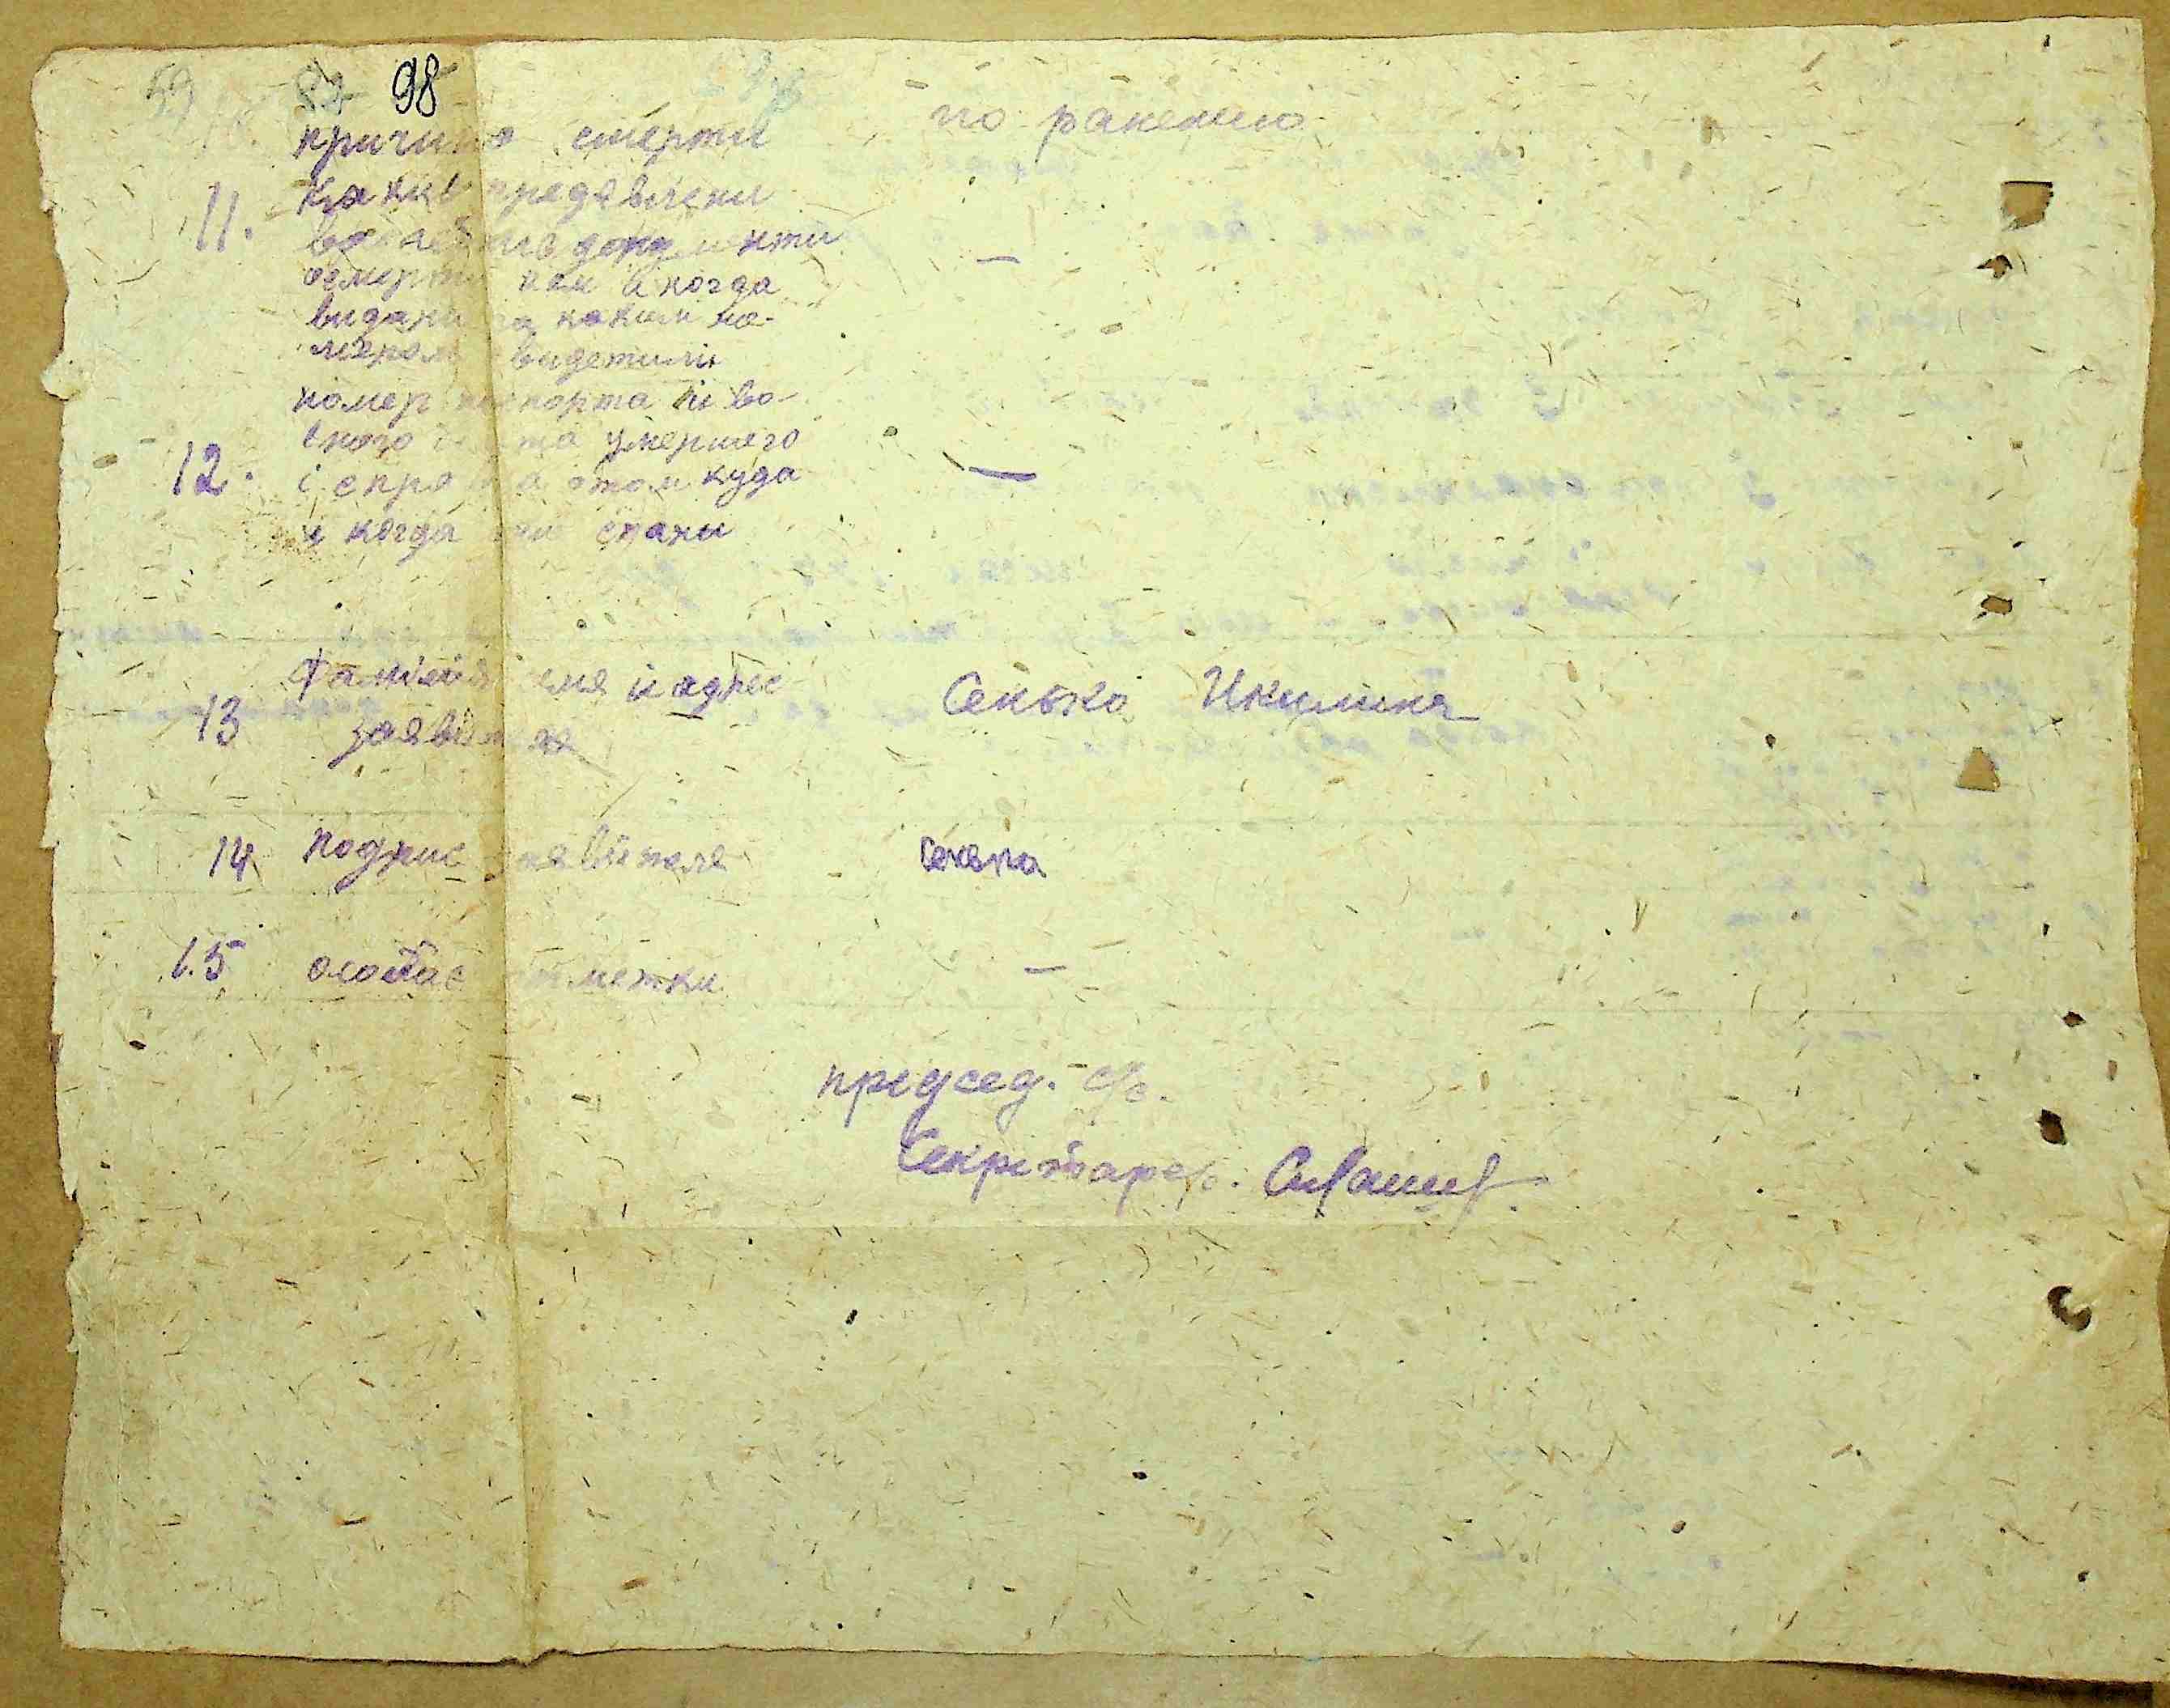 59 82 98
причина смерти по ранению
11. какие предявлени
документи
осмерти кем и когда
видани за каким но-
мером свидетили
номер паспорта и во-
еного билета умершего
12. и справка отом куда
и когда они сданы
13 Фамилия имя и адрес Сенько
заявителя
14 подпис заявителя Сенько
15 особые отметки —
председ. с/с.
Секретарь.